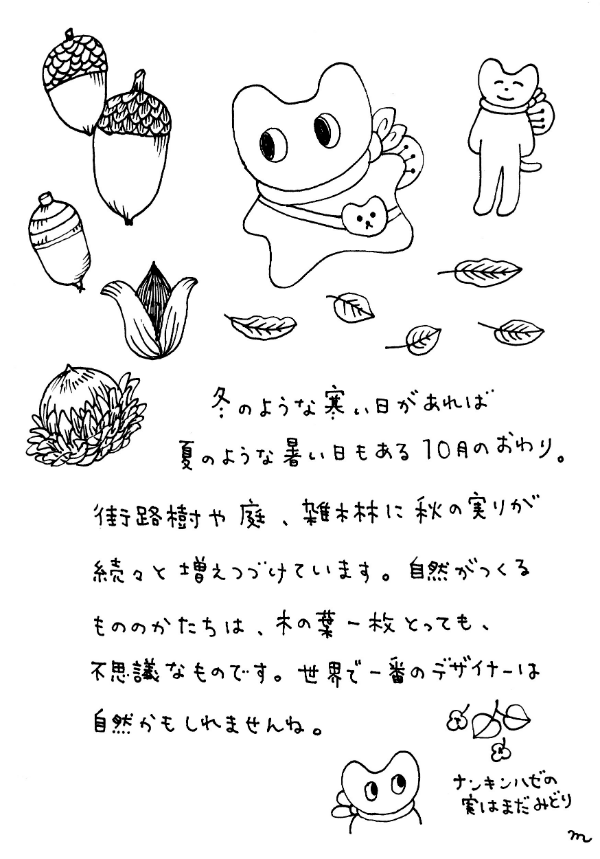 冬のような寒い日があれば
夏のような暑い日もある10月のおわり。
街路樹や庭、雑木林に秋の実りが
続々と増えつづけています。自然がつくる
もののかたちは、木の葉一枚とっても、
不思議なものです。世界で一番のデザイナーは
自然かもしれませんね。
ナンキンハゼの
実はまだみどり
m